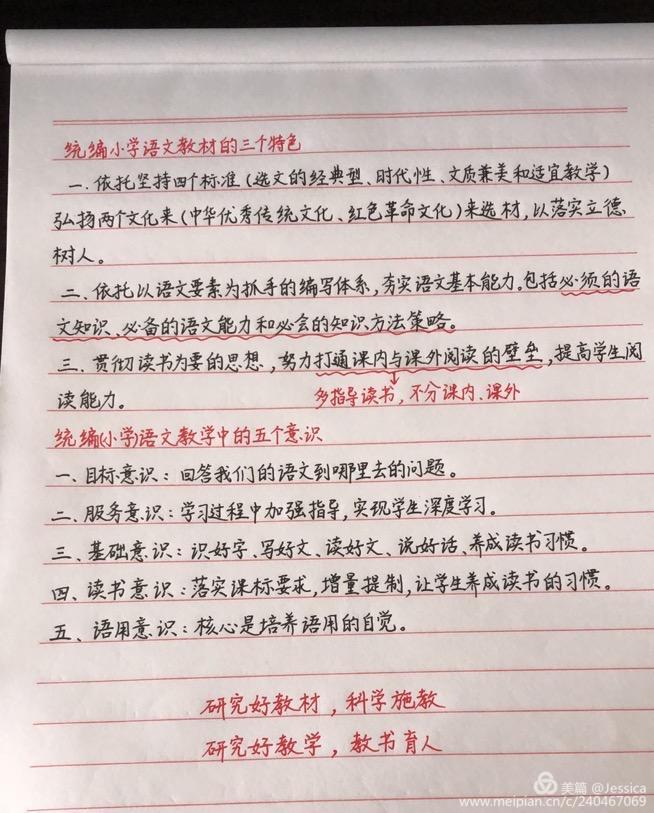 统编小学语文教材的三个特色
一、依托坚持四个标准(选文的经典型、时代性、文质兼美和适宜教学)
弘扬两个文化来(中华优秀传统文化、红色革命文化)来选材,以落实立德
树人。
二、依托以语文要素为抓手的编写体系,夯实语文基本能力。包括必须的语
文知识、必备的语文能力和必会的知识方法策略。
三、贯彻读书为要的思想,努力打通课内与课外阅读的壁垒,提高学生阅
读能力。
多指导读书,不分课内、课外
统编(小学)语文教学中的五个意识
一、目标意识:回答我们的语文到哪里去的问题。
二、服务意识:学习过程中加强指导,实现学生深度学习。
三、基础意识:识好字、写好文、读好文、说好话、养成读书习惯。
四、读书意识:落实课标要求,增量提制,让学生养成读书的习惯。
五、语用意识:核心是培养语用的自觉。
研究好教材,科学施教
研究好教学,教书育人
美篇 @Jessica
www.meipian.cn/c/240467069